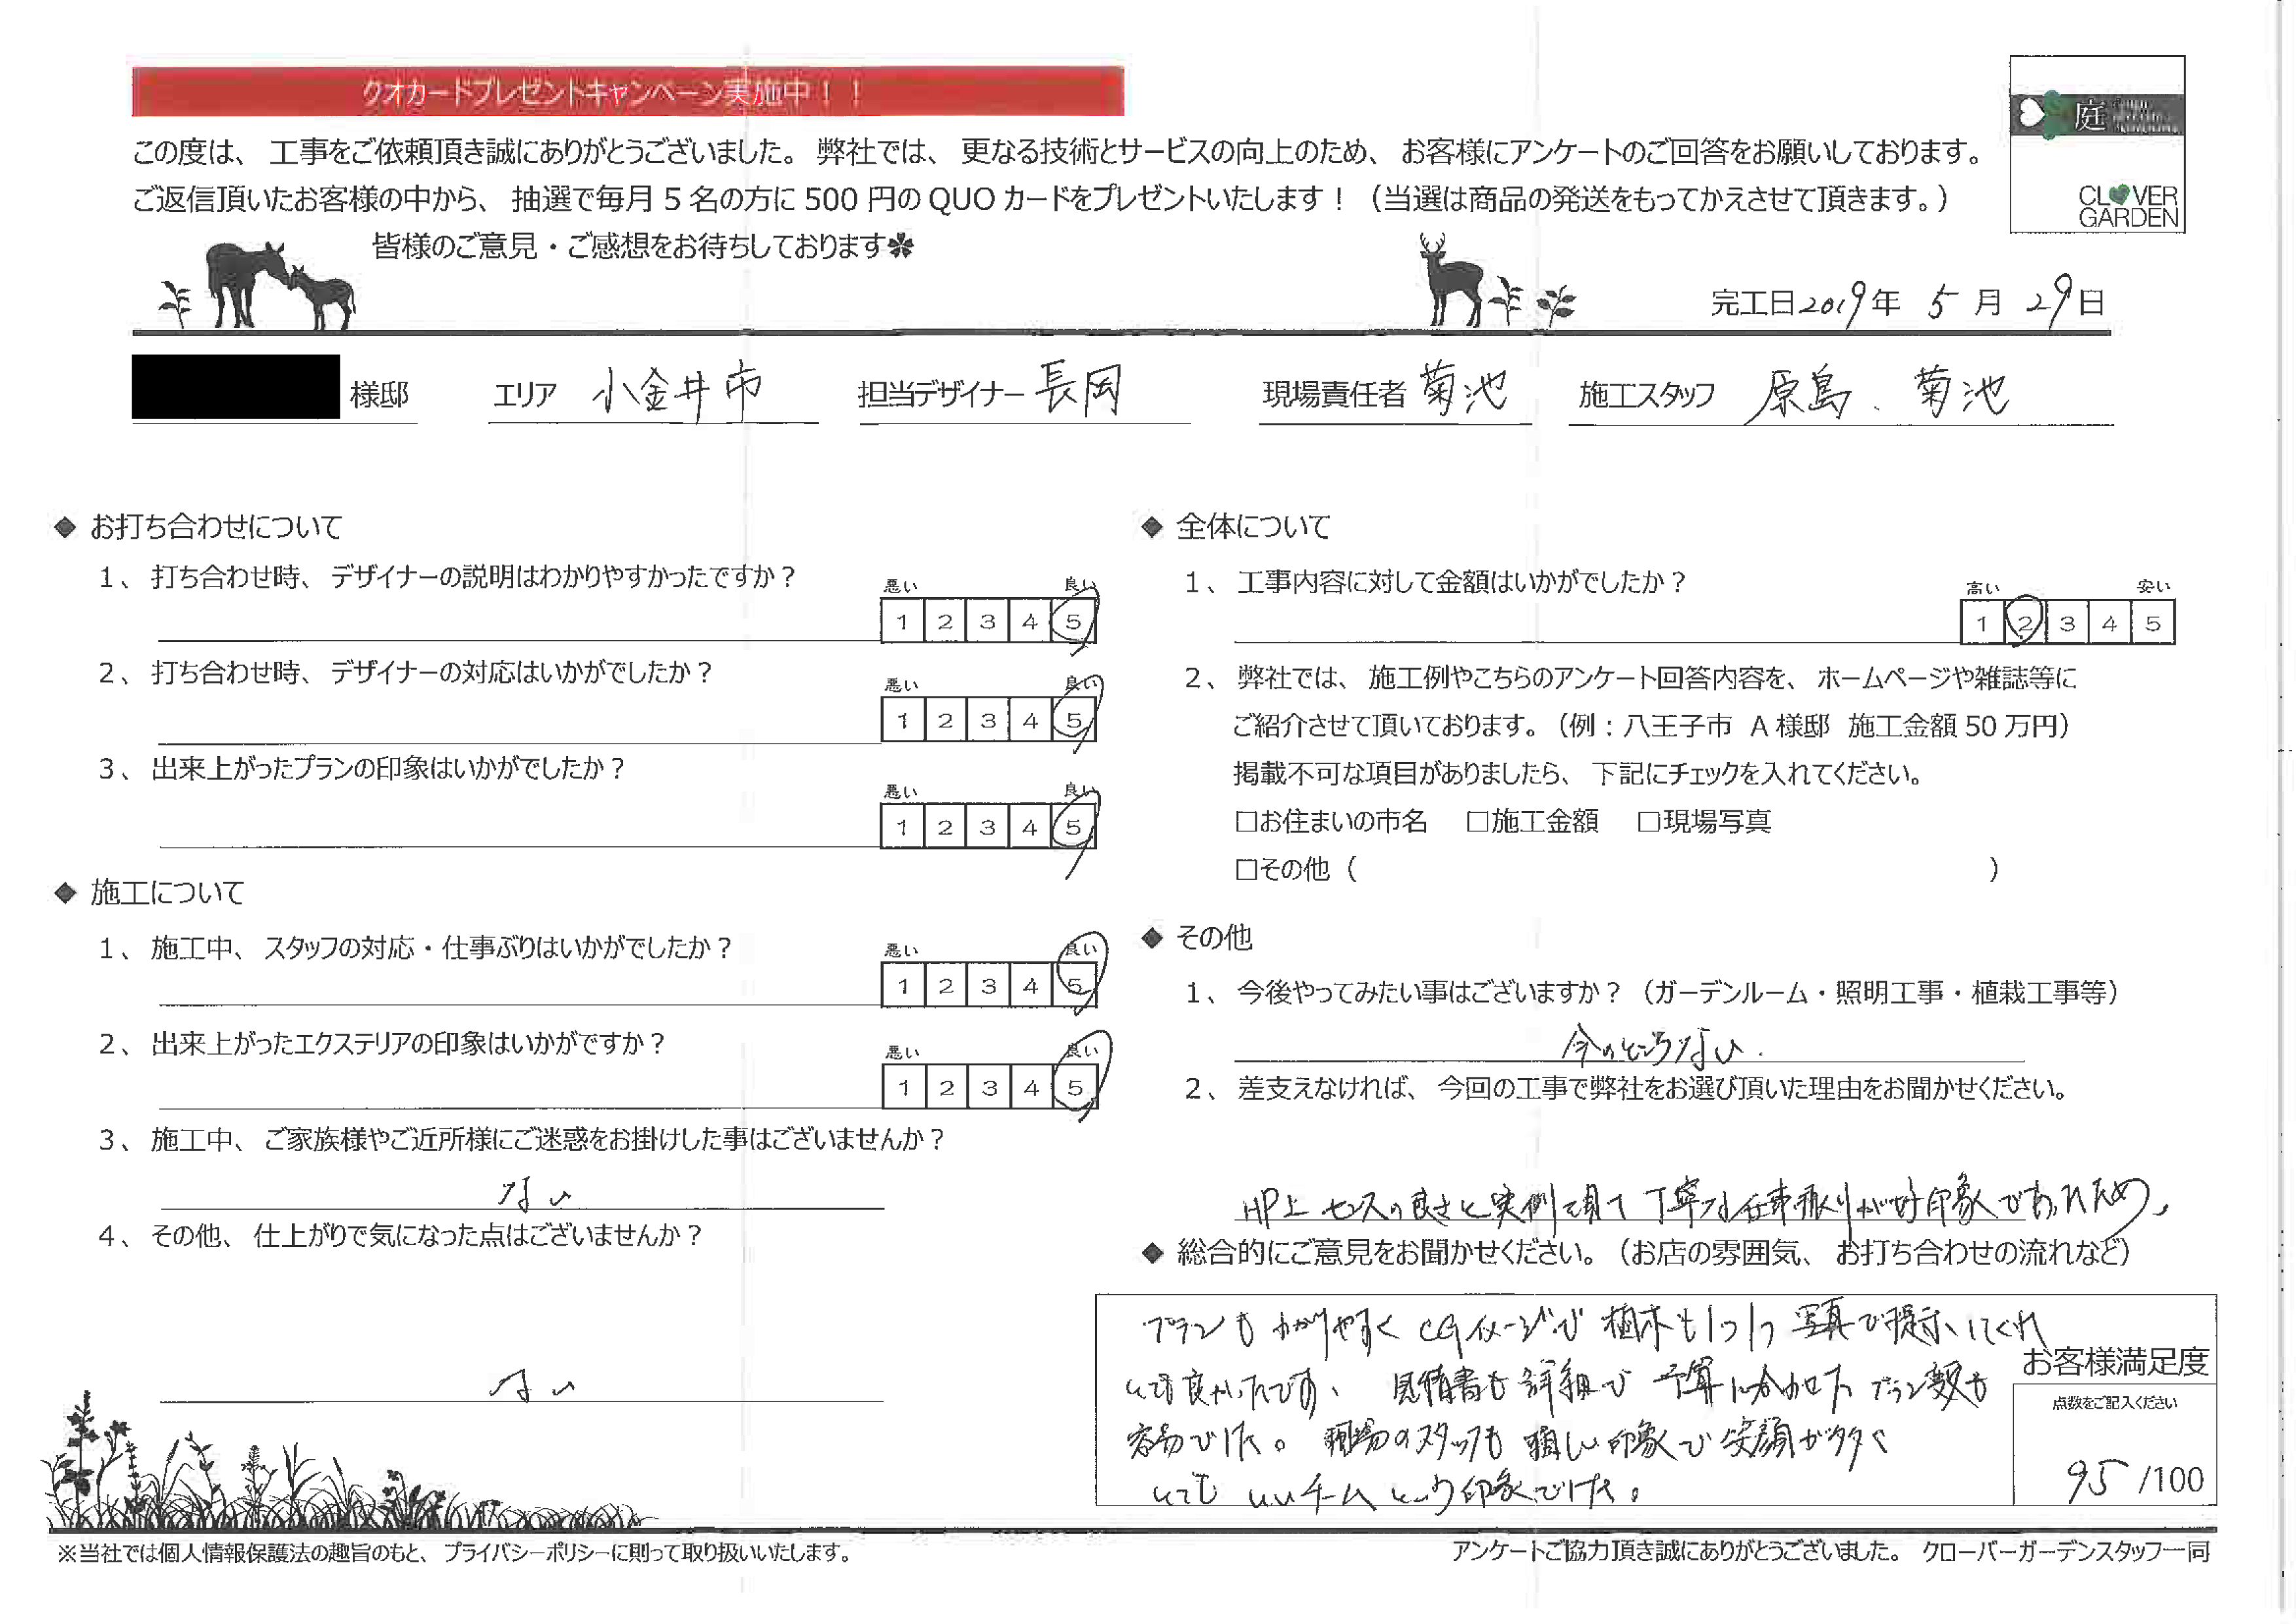 クオカードプレゼントキャンペーン実施中！！
この度は、工事をご依頼頂き誠にありがとうございました。弊社では、更なる技術とサービスの向上のため、お客様にアンケートのご回答をお願いしております。
ご返信頂いたお客様の中から、抽選で毎月5名の方に500円のQUOカードをプレゼントいたします！（当選は商品の発送をもってかえさせて頂きます。）
皆様のご意見・ご感想をお待ちしております✽
庭
CLOVER
GARDEN
完工日2019年 5月 29日
様邸 エリア 小金井市 担当デザイナー 長岡 現場責任者 菊池 施工スタッフ 原島、菊池
◆ お打ち合わせについて
1、打ち合わせ時、デザイナーの説明はわかりやすかったですか？
悪い 良い
1 2 3 4 5
2、打ち合わせ時、デザイナーの対応はいかがでしたか？
悪い 良い
1 2 3 4 5
3、出来上がったプランの印象はいかがでしたか？
悪い 良い
1 2 3 4 5
◆ 施工について
1、施工中、スタッフの対応・仕事ぶりはいかがでしたか？
悪い 良い
1 2 3 4 5
2、出来上がったエクステリアの印象はいかがですか？
悪い 良い
1 2 3 4 5
3、施工中、ご家族様やご近所様にご迷惑をお掛けした事はございませんか？
ない
4、その他、仕上がりで気になった点はございませんか？
ない
◆ 全体について
1、工事内容に対して金額はいかがでしたか？
高い 安い
1 2 3 4 5
2、弊社では、施工例やこちらのアンケート回答内容を、ホームページや雑誌等に
ご紹介させて頂いております。（例：八王子市 A様邸 施工金額50万円）
掲載不可な項目がありましたら、下記にチェックを入れてください。
□お住まいの市名 □施工金額 □現場写真
□その他（ ）
◆ その他
1、今後やってみたい事はございますか？（ガーデンルーム・照明工事・植栽工事等）
今のところない.
2、差支えなければ、今回の工事で弊社をお選び頂いた理由をお聞かせください。
HP上センスの良さと実例を見て丁寧な仕事振りが好印象であったため。
◆ 総合的にご意見をお聞かせください。（お店の雰囲気、お打ち合わせの流れなど）
プランもわかりやすくCGイメージで植木も1つ1つ写真で提示してくれ
とても良かったです、見積書も詳細で予算に合わせたプラン変更も
容易でした。現場のスタッフも優しい印象で笑顔が多く
とてもいいチームという印象でした。
お客様満足度
点数をご記入ください
95/100
※当社では個人情報保護法の趣旨のもと、プライバシーポリシーに則って取り扱いいたします。
アンケートご協力頂き誠にありがとうございました。 クローバーガーデンスタッフ一同